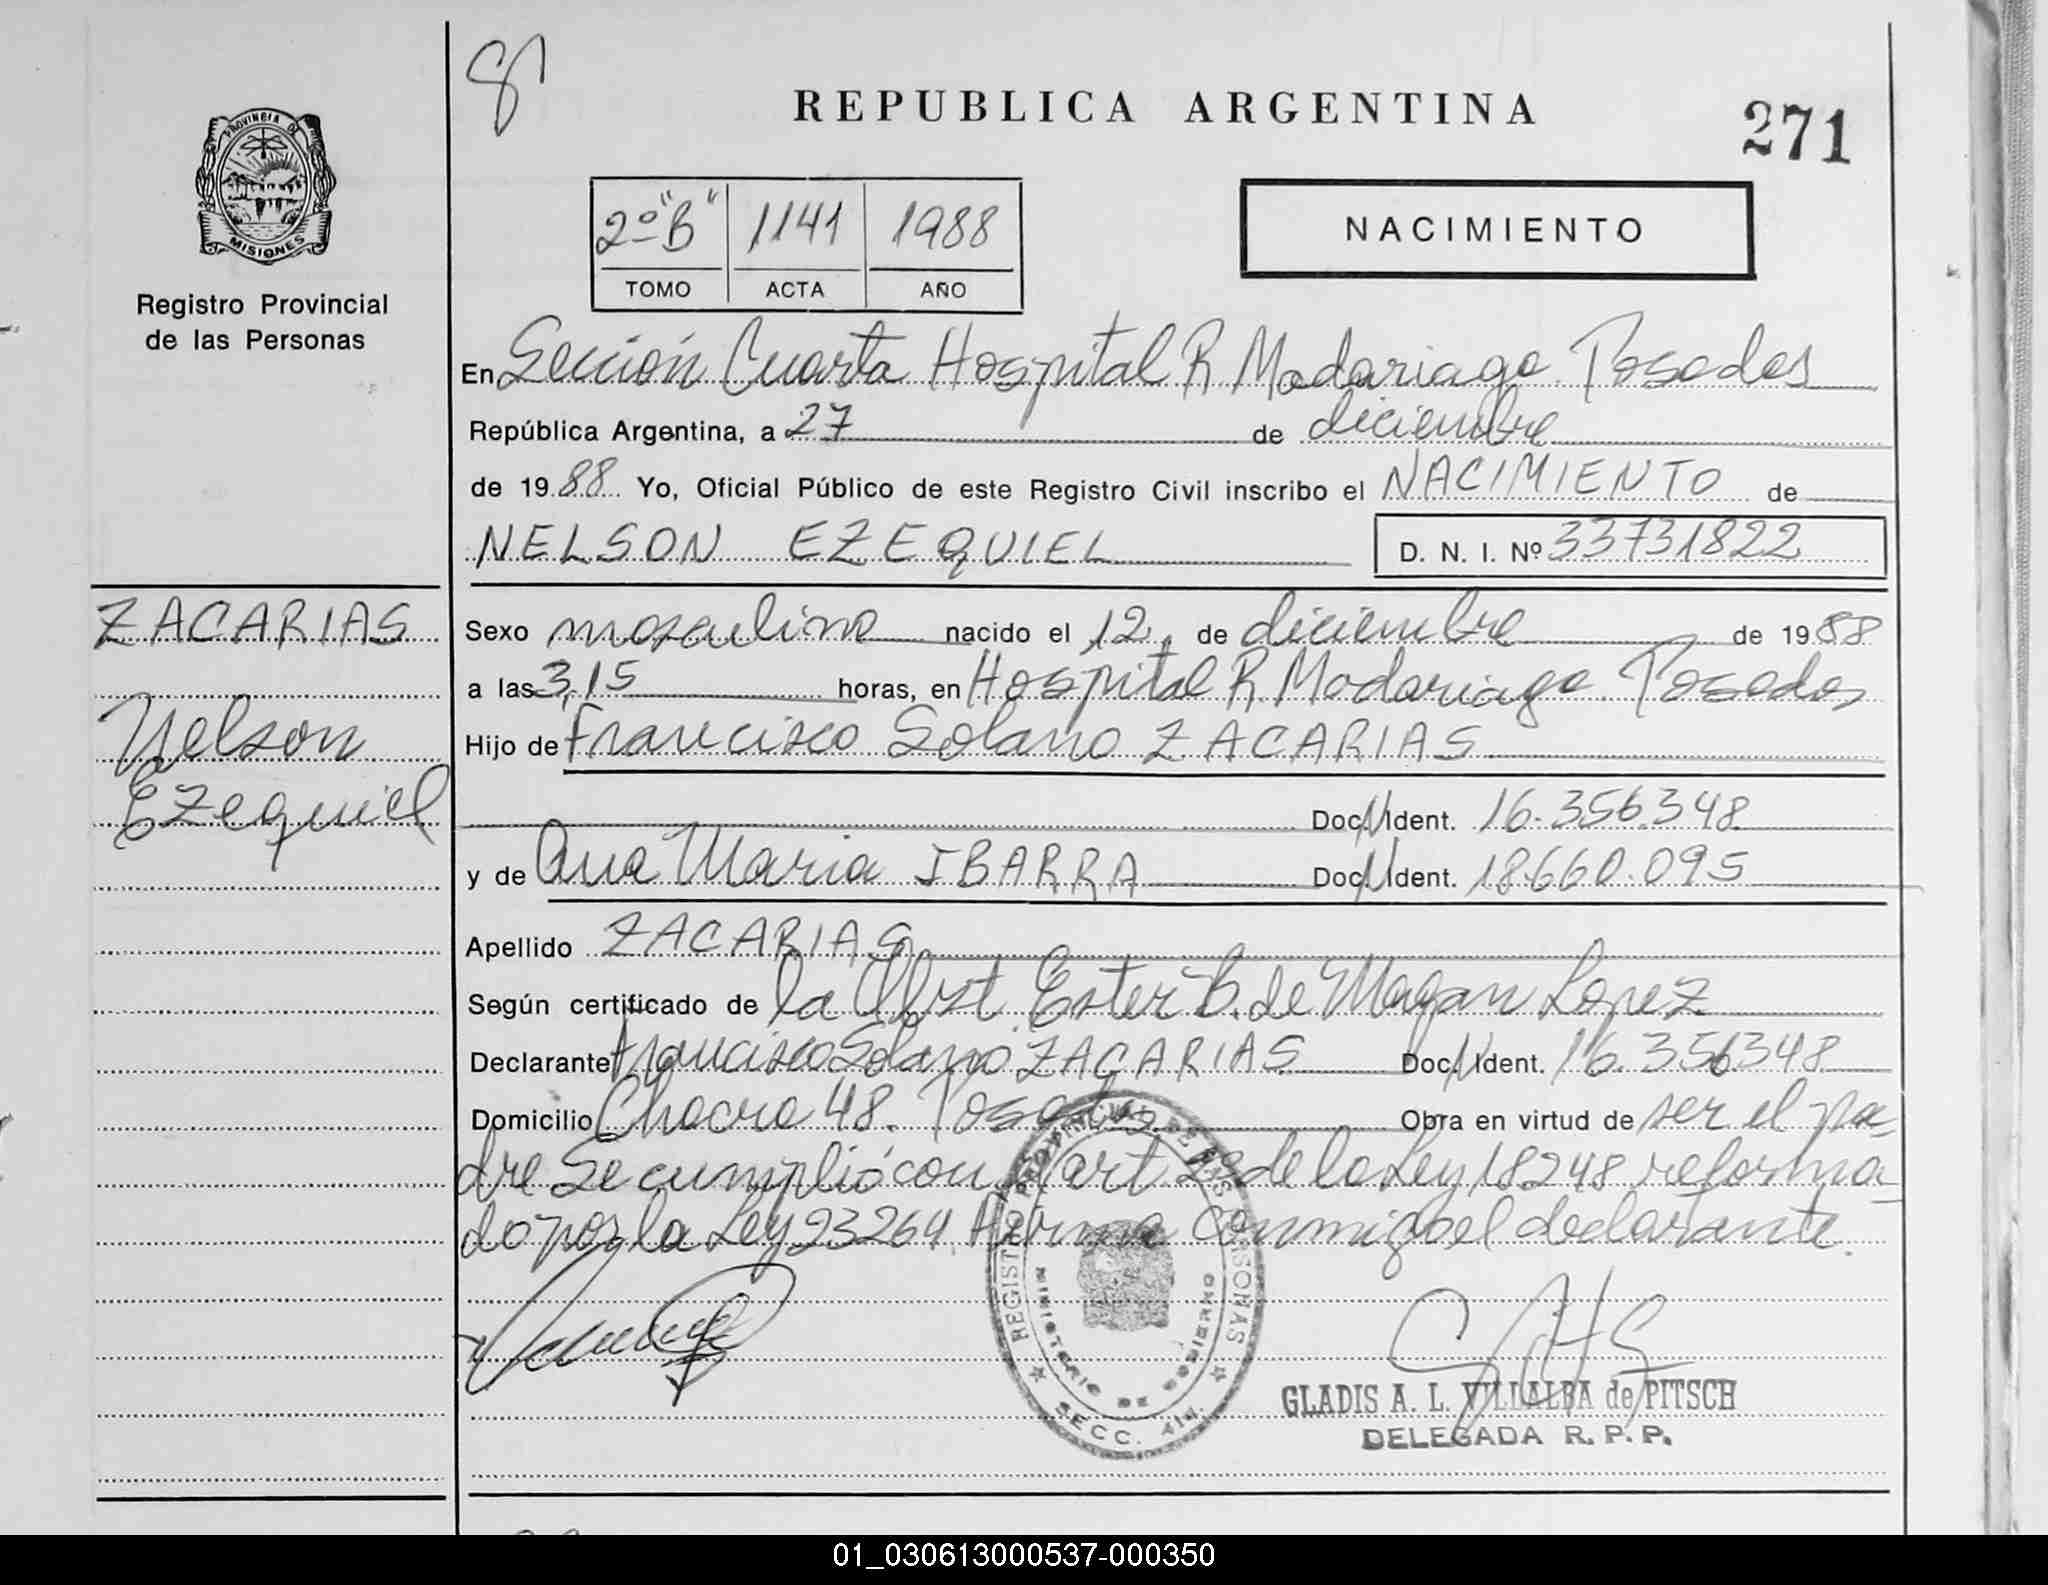 REPUBLICA ARGENTINA
271
PROVINCIA DE
MISIONES
Registro Provincial
de las Personas
2º "B" 1141 1988
TOMO ACTA AÑO
NACIMIENTO
En Sección Cuarta Hospital R Madariaga. Posadas
República Argentina, a 27 de diciembre
de 1988 Yo, Oficial Público de este Registro Civil inscribo el NACIMIENTO de
NELSON EZEQUIEL D. N. I. Nº 33731822
ZACARIAS
Nelson
Ezequiel
Sexo masculino nacido el 12 de diciembre de 1988
a las 3,15 horas, en Hospital R. Madariaga. Posadas
Hijo de Francisco Solano ZACARIAS
Doc. N Ident. 16.356.348
y de Ana Maria IBARRA Doc. N Ident. 18.660.095
Apellido ZACARIAS
Según certificado de la Obst. Ester B. de Magan Lopez
Declarante Francisco Solano ZACARIAS Doc. N Ident. 16.356348
Domicilio Chacra 48. Posadas. Obra en virtud de ser el pa-
dre Se cumplió con art 2º de la Ley 18248 reforma-
do por la Ley 23264. Firma conmigo el declarante.
REGISTRO PROVINCIAL DE LAS PERSONAS
MINISTERIO DE GOBIERNO
SECC. 4ta.
GLADIS A. L. VILLALBA de PITSCH
DELEGADA R. P. P.
01_030613000537-000350